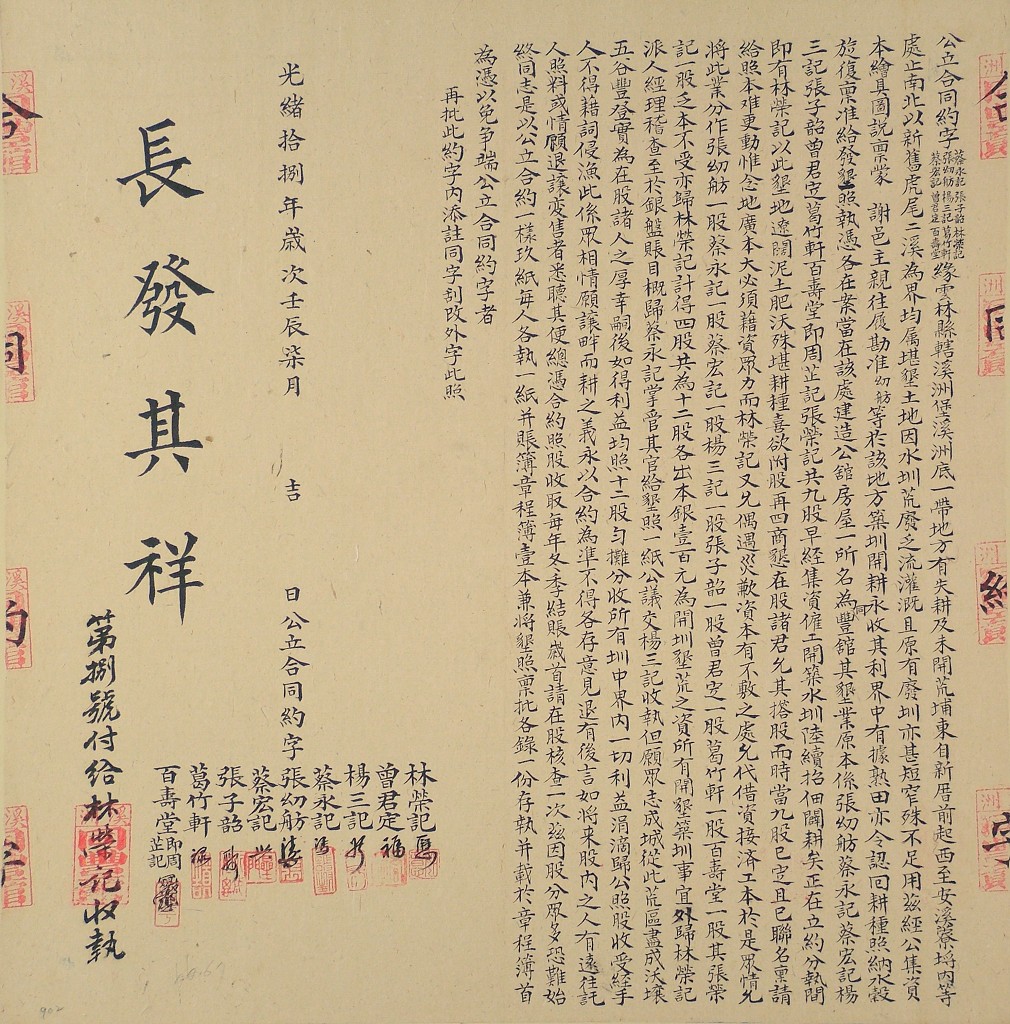 公立合同約字蔡永記張子韶林榮記張幼舫楊三記葛竹軒蔡宏記曾君定百壽堂緣雲林縣轄溪洲堡溪洲底一帶地方有失耕及未開荒埔東自新厝前起西至安溪藔埒內等
處止南北以新舊虎尾二溪為界均属堪墾土地因水圳荒廢之流灌溉且原有廢圳亦甚短窄殊不足用茲經公集資
本繪具圖説稟蒙 謝邑主親往履勘准幼舫等於該地方築圳開耕永收其利界中有據熟田亦令認回耕種照納水穀
旋復稟准給發墾照執憑各在案當在該處建造公舘房屋一所名為同豐舘其墾業原本係張幼舫蔡永記蔡宏記楊
三記張子韶曾君定葛竹軒百壽堂即周芷記張榮記共九股早經集資僱工開築水圳陸續招佃闢耕矣正在立約分執間
即有林榮記以此墾地遼闊泥土肥沃殊堪耕種喜欲附股再四商懇在股諸君允其搭股而時當九股已定且已聯名稟請
給照本难更動惟念地廣本大必須藉資眾力而林榮記又允偶遇災歉資本有不敷之處允代借資接濟工本於是眾情允
將此業分作張幼舫一股蔡永記一股蔡宏記一股楊三記一股張子韶一股曾君定一股葛竹軒一股百壽堂一股其張榮
記一股之本不受亦歸林榮記計得四股共為十二股各出本銀壹百元為開圳墾荒之資所有開墾築圳事宜外歸林榮記
派人經理稽查至於銀盤賬目概歸蔡永記掌管其官給墾照一紙公議交楊三記收執但願眾志成城從此荒區盡成沃壤
五谷豐登實為在股諸人之厚幸嗣後如得利益均照十二股勻攤分收所有圳中界內一切利益涓滴歸公照股收受經手
人不得藉詞侵漁此係眾相情願讓畔而耕之義永以合約為準不得各存意見退有後言如將来股內之人有遠往託
人照料或情願退讓变售者悉聽其便總憑合約照股收取每年冬季結賬歲首請在股核查一次茲因股分眾多恐難始
終同志是以公立合約一樣玖紙每人各執一紙并賬簿章程簿壹本兼將墾照稟批各錄一份存執并載於章程簿首
為憑以免争端公立合同約字者
再批此約字內添註同字刮改外字此照
光緒拾捌年歲次壬辰柒月 吉 日公立合同約字
林榮記
曾君定
楊三記
蔡永記
張幼舫
蔡宏記
張子韶
葛竹軒
百壽堂即周芷記
長發其祥
第捌號付給林榮記收執